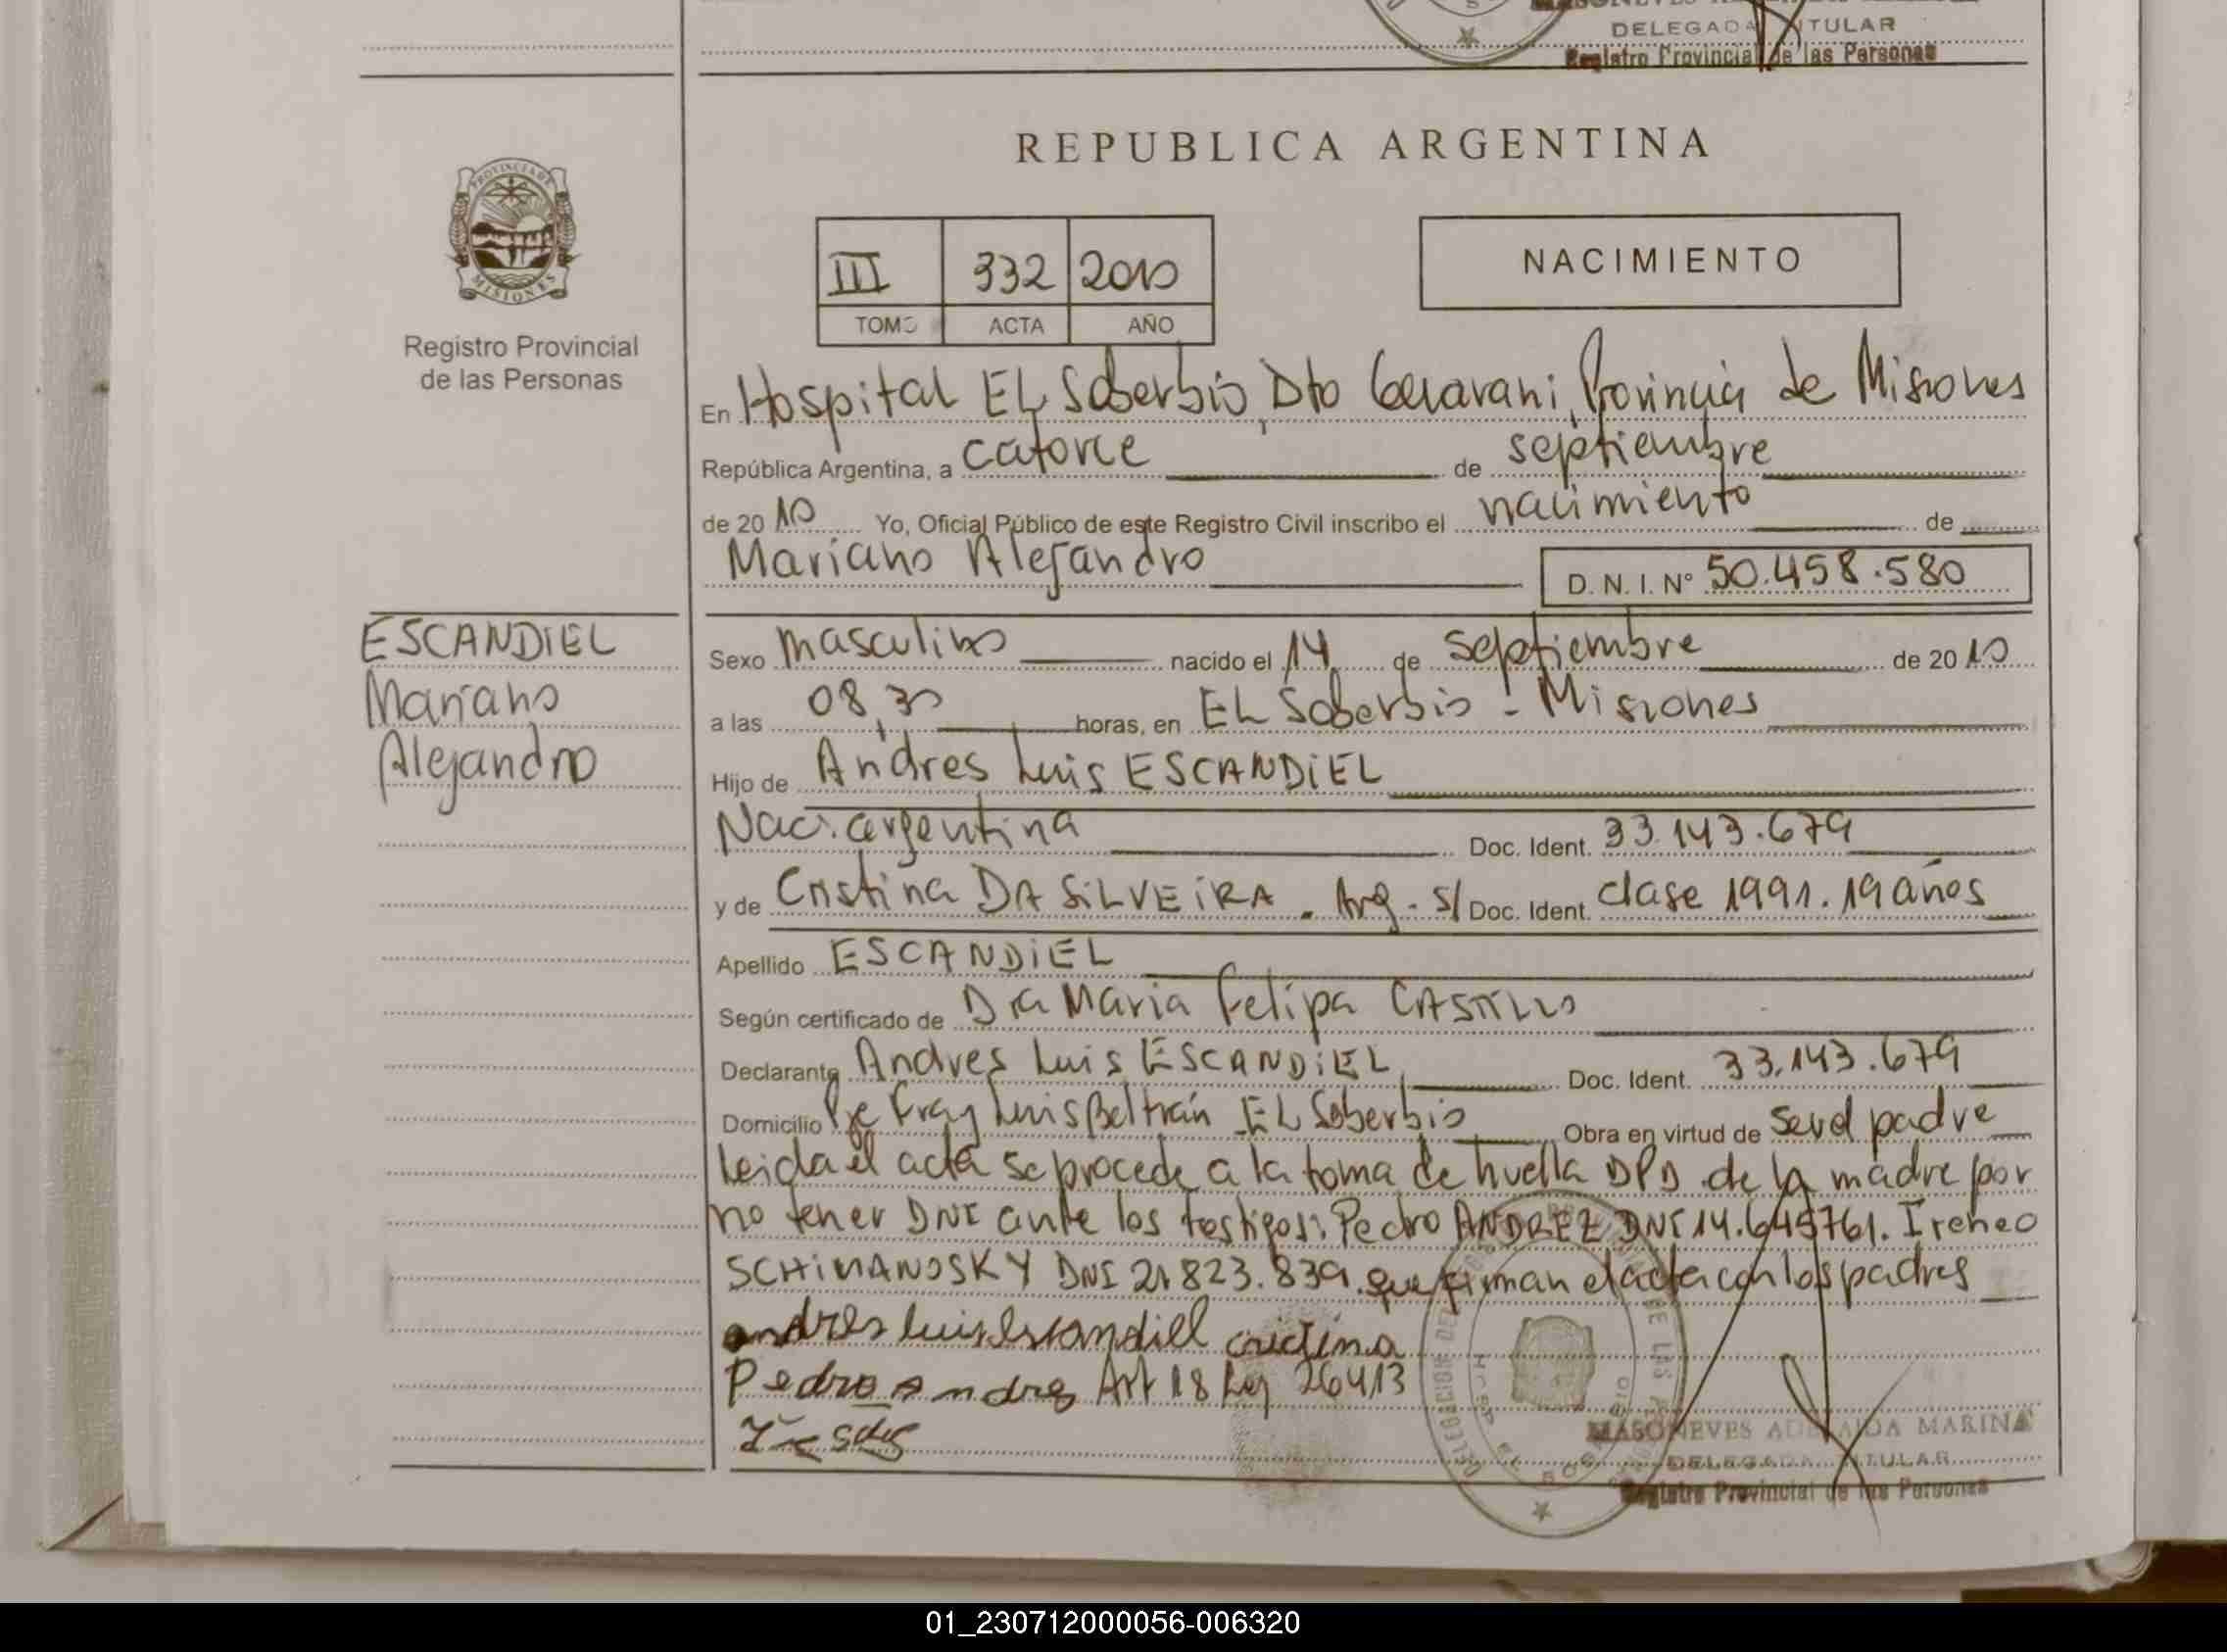 DELEGADA TITULAR
Registro Provincial de las Personas
REPUBLICA ARGENTINA
PROVINCIA DE
MISIONES
Registro Provincial
de las Personas
III 332 2010
TOMO ACTA AÑO
NACIMIENTO
En Hospital EL Soberbio, Dto Guarani, Provincia de Misiones
República Argentina, a catorce de septiembre
de 2010 Yo, Oficial Público de este Registro Civil inscribo el nacimiento de
Mariano Alejandro D. N. I. N° 50.458.580
ESCANDIEL
Mariano
Alejandro
Sexo masculino nacido el 14 de septiembre de 2010
a las 08,30 horas, en EL Soberbio - Misiones
Hijo de Andres Luis ESCANDIEL
Nac. argentina Doc. Ident. 33.143.679
y de Cristina DA SILVEIRA. Arg. S/ Doc. Ident. clase 1991. 19 años
Apellido ESCANDIEL
Según certificado de Dra Maria Felipa CASTILLO
Declarante Andres Luis ESCANDIEL Doc. Ident. 33.143.679
Domicilio Pje Fray Luis Beltrán EL Soberbio Obra en virtud de ser el padre
Leida el acta se procede a la toma de huella DPD de la madre por
no tener DNI ante los testigos: Pedro ANDREZ DNI 14.645761. Ireneo
SCHIMANOSKY DNI 21.823.839. que firman el acta con los padres
andres luis Escandiell cristina
Pedro Andres Art 18 Ley 26413
MASONEVES ADELAIDA MARINA
DELEGADA TITULAR
Registro Provincial de las Personas
01_230712000056-006320